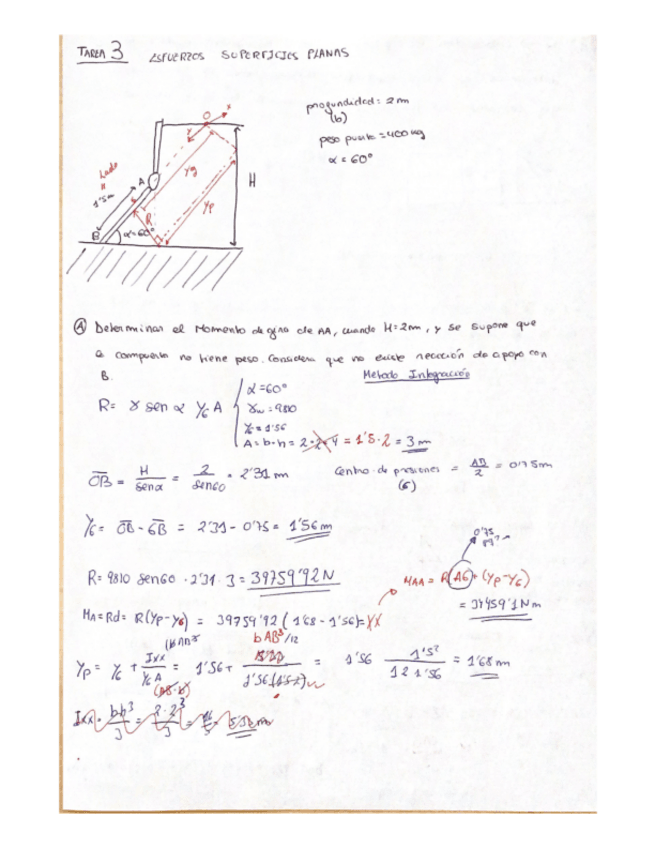 TAREA 3 ESFUERZOS SUPERFICIES PLANAS
profundidad = 2 m
(b)
peso puerta = 400 kg
α = 60°
O
x
y
Lado
"
1'5m
A
yg
yp
H
R
B
α=60°
Ⓐ Determinar el Momento de giro de AA, cuando H=2m, y se supone que
la compuerta no tiene peso. Considera que no existe reacción de apoyo con
B.
Metodo Integración
R = γ sen α YG A
α = 60°
γw = 9810
YG = 1'56
A = b·h = 2·2=4 = 1'5·2 = 3 m
OB = H / sen α = 2 / sen 60 = 2'31 m
Centro de presiones = AB / 2 = 0'75m
(G)
YG = OB - GB = 2'31 - 0'75 = 1'56 m
R = 9810 sen60 · 2'31 · 3 = 39759'92 N
MA = Rd = R(Yp - YG) = 39759'92 (1'68 - 1'56) =
0'75
MAA = R(AG + (Yp-YG)
= 34459'1 Nm
Yp = YG + Ixx / YG A = 1'56 + b AB³/12 / 1'56 (1'5·2) = 1'56 1'5² / 12 1'56 = 1'68 m
(AB·b)
Ixx = bh³ / 3 = 2·2³ / 3 = 16 / 3